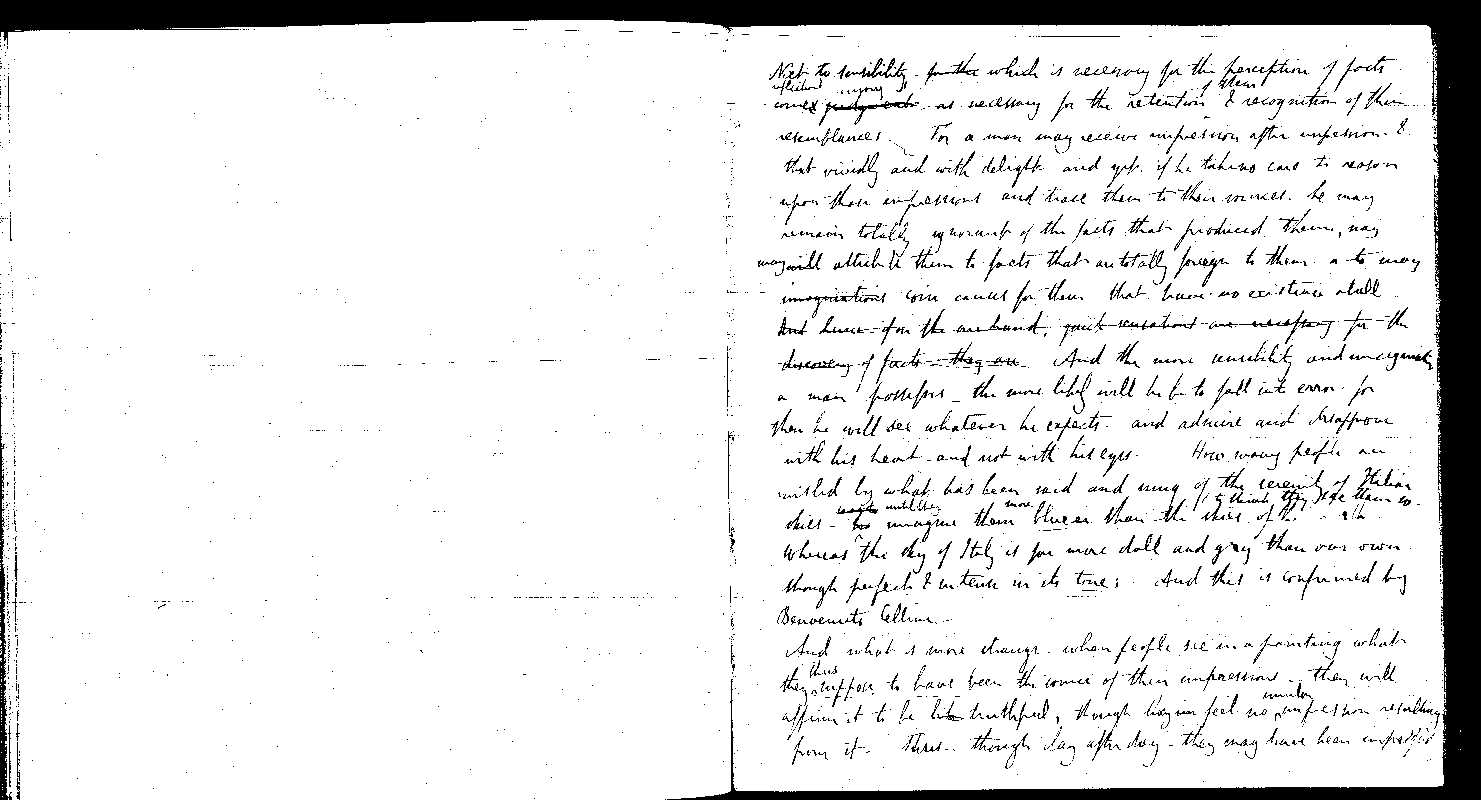 Next to sensibility for the which is necessary for the perception of facts
reflection memory is of them
comes judgment as necessary for the retention & recognition of their
resemblances. For a man may receive impression after impression &
that vividly and with delight and yet if he take no care to reason
upon those impressions and trace them to their sources he may
remain totally ignorant of the facts that produced them, nay
may will attribute them to facts that are totally foreign to them or to may
imaginations coin causes for them that have no existence atall
And hence if on the one hand, quick sensations are necessary for the
discovery of facts they are And the more sensibility and
a man possesses the more likely will he be to fall into error for
then he will see whatever he expects and admire and disapprove
with his heart and not with his eyes. How many people are
misled by what has been said and sung of the serenity of Italian
until they more to think they see them so
skies to imagine them bluer than the skies of the
Whereas the sky of Italy is far more dull and grey than our own
though perfect & intense in its tone: And this is confirmed by
Benvenuto Cellini
And what is more strange when people see in a painting what
thus
they suppose to have been the source of their impressions they will
similar
affirm it to be truthful, though they feel no impression resulting
from it. Thus though day after day they may have been impressed